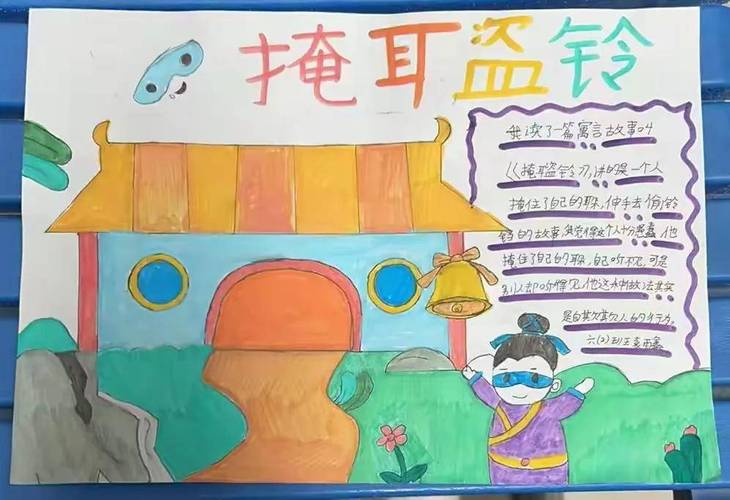 掩耳盗铃
我读了一篇寓言故事叫
《掩耳盗铃》,讲的是一个人
掩住了自己的耳朵,伸手去偷铃
铛的故事,我觉得这个人十分愚蠢,他
掩住了自己的耳朵,自己听不见,可是
别人却听得见,他这种做法其实
是自欺欺人的行为。
六(2)班王